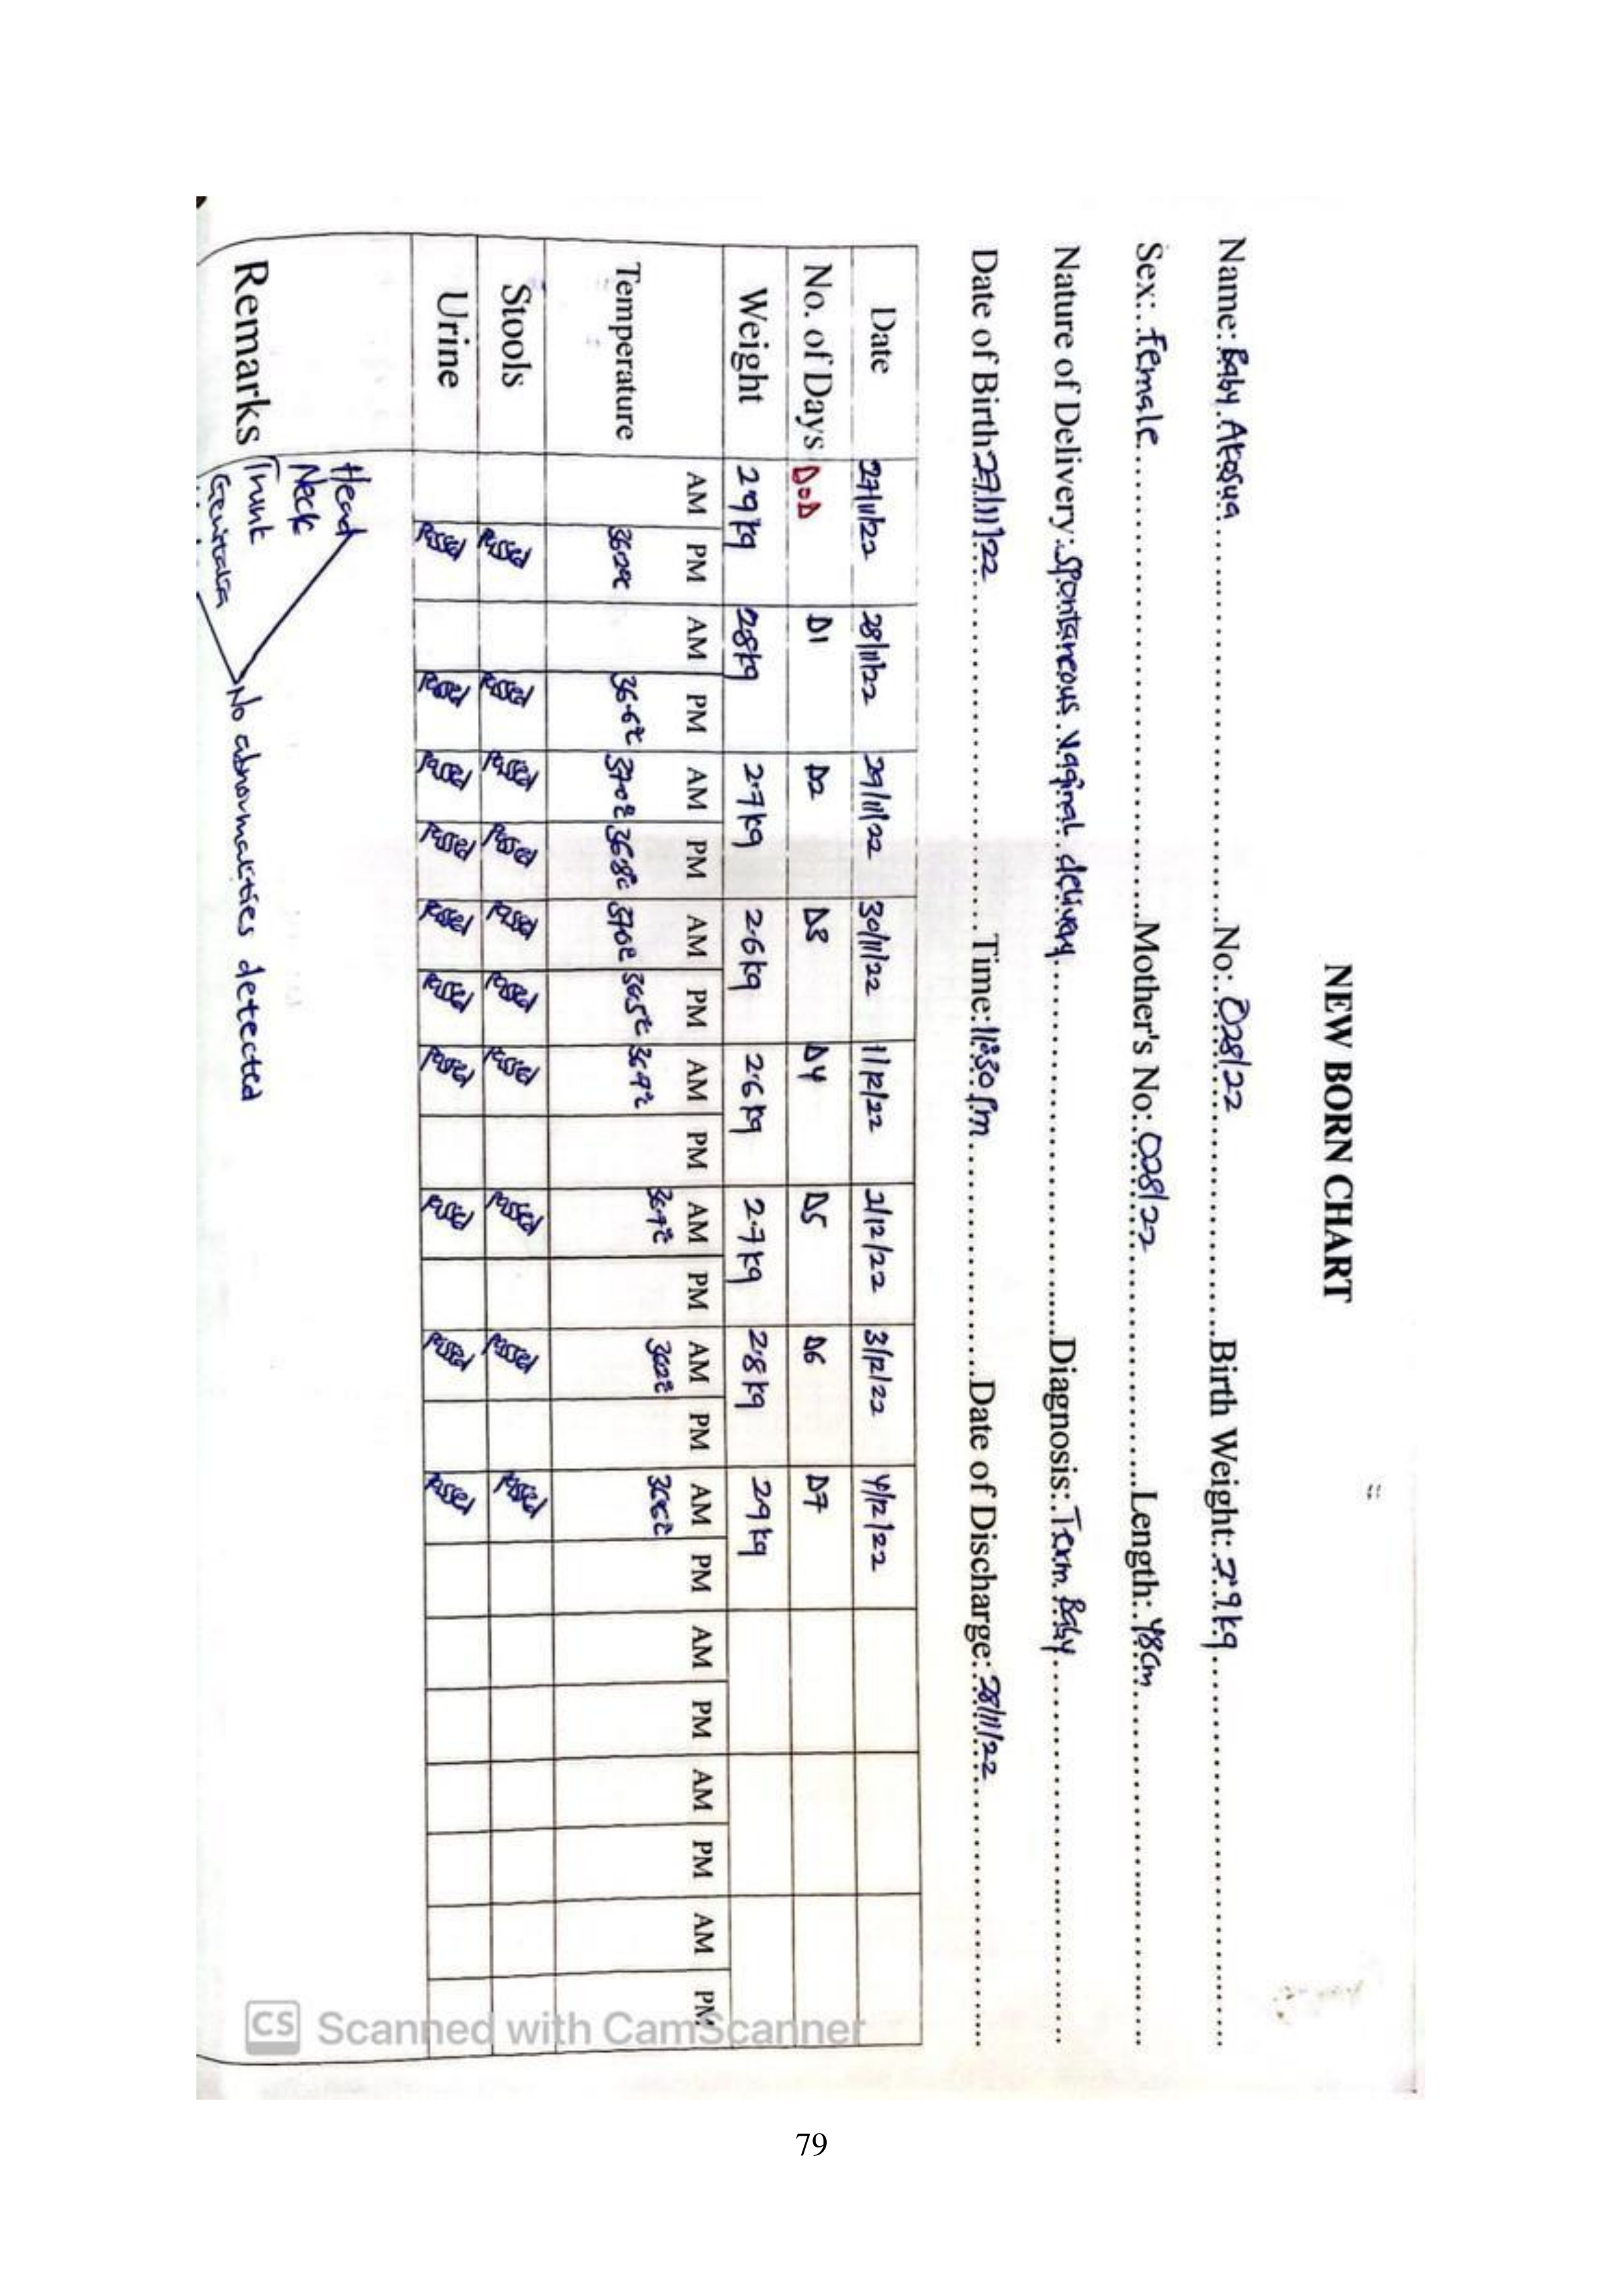 NEW BORN CHART
Name: Baby Akosua No: 028/22 Birth Weight: 2.9kg
Sex: Female Mother's No: 028/22 Length: 48cm
Nature of Delivery: Spontaneous vaginal delivery Diagnosis: Term Baby
Date of Birth 27/11/22 Time: 11:30pm Date of Discharge: 28/11/22
Date 27/11/22 28/11/22 29/11/22 30/11/22 1/12/22 2/12/22 3/12/22 4/12/22
No. of Days D.O.D D1 D2 D3 D4 D5 D6 D7
Weight 2.9kg 2.8kg 2.7kg 2.6kg 2.6kg 2.7kg 2.8kg 2.9kg
AM PM AM PM AM PM AM PM AM PM AM PM AM PM AM PM AM PM AM PM AM PM
Temperature 36.6°c 37.0°c 36.8°c 37.0°c 36.5°c 36.9°c
Stools Passed Passed Passed Passed Passed Passed Passed Passed Passed Passed
Urine Passed Passed Passed Passed Passed Passed Passed Passed Passed Passed
Head
Neck
Remarks Trunk No abnormalities detected
Genitalia
CS Scanned with CamScanner
79